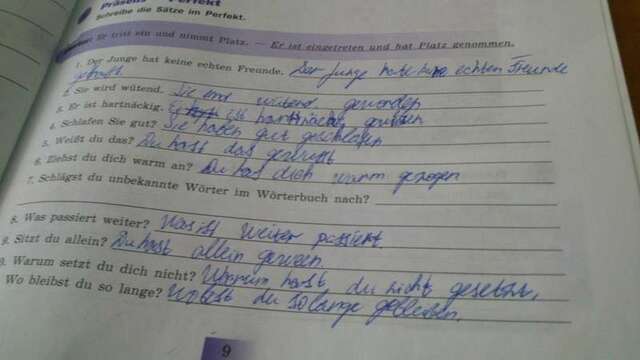 Präsens Perfekt
Schreibe die Sätze im Perfekt.
Er tritt ein und nimmt Platz. — Er ist eingetreten und hat Platz genommen.
1. Der Junge hat keine echten Freunde. Der Junge hate echten Freunde
gehabt.
2. Sie wird wütend. Sie wütend geworden
3. Er ist hartnäckig. ist
4. Schlafen Sie gut? Sie haben gut geschlafen
5. Weißt du das? Du hast das gewusst
6. Ziehst du dich warm an? Du has dich warm gezogen
7. Schlägst du unbekannte Wörter im Wörterbuch nach?
8. Was passiert weiter? Was ist weiter passiert.
9. Sitzt du allein? Du hast allein
Warum setzt du dich nicht? Warum hast du nicht gesetzt,
Wo bleibst du so lange? du so lange geblieben.
9